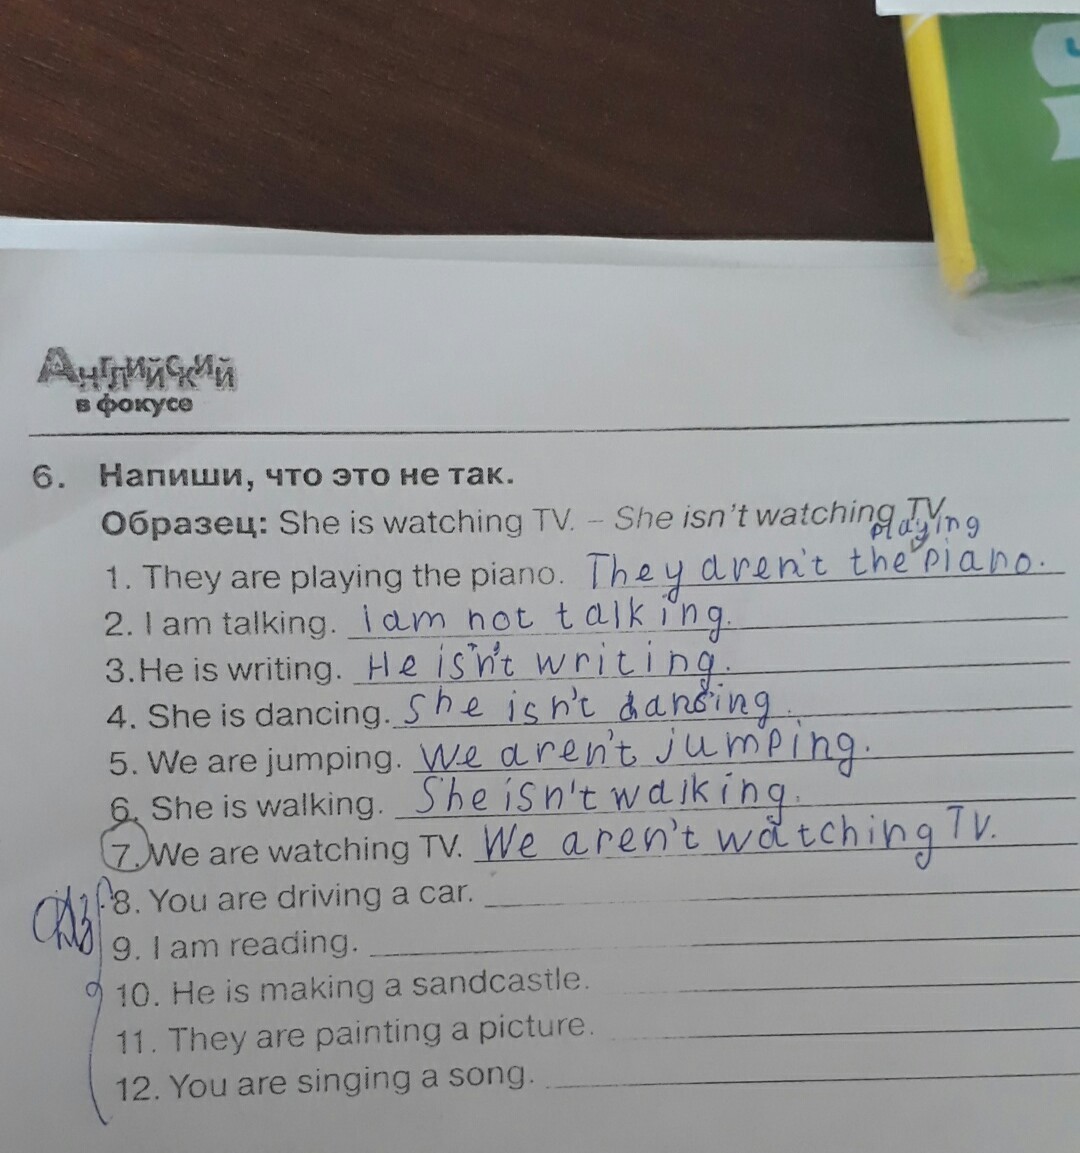 Английский
в фокусе
6. Напиши, что это не так.
Образец: She is watching TV. – She isn't watching TV.
playing
1. They are playing the piano. They aren't the piano.
2. I am talking. I am not talking.
3.He is writing. He isn't writing.
4. She is dancing. She isn't dancing.
5. We are jumping. We aren't jumping.
6. She is walking. She isn't walking.
7. We are watching TV. We aren't watching TV.
8. You are driving a car.
9. I am reading.
10. He is making a sandcastle.
11. They are painting a picture.
12. You are singing a song.